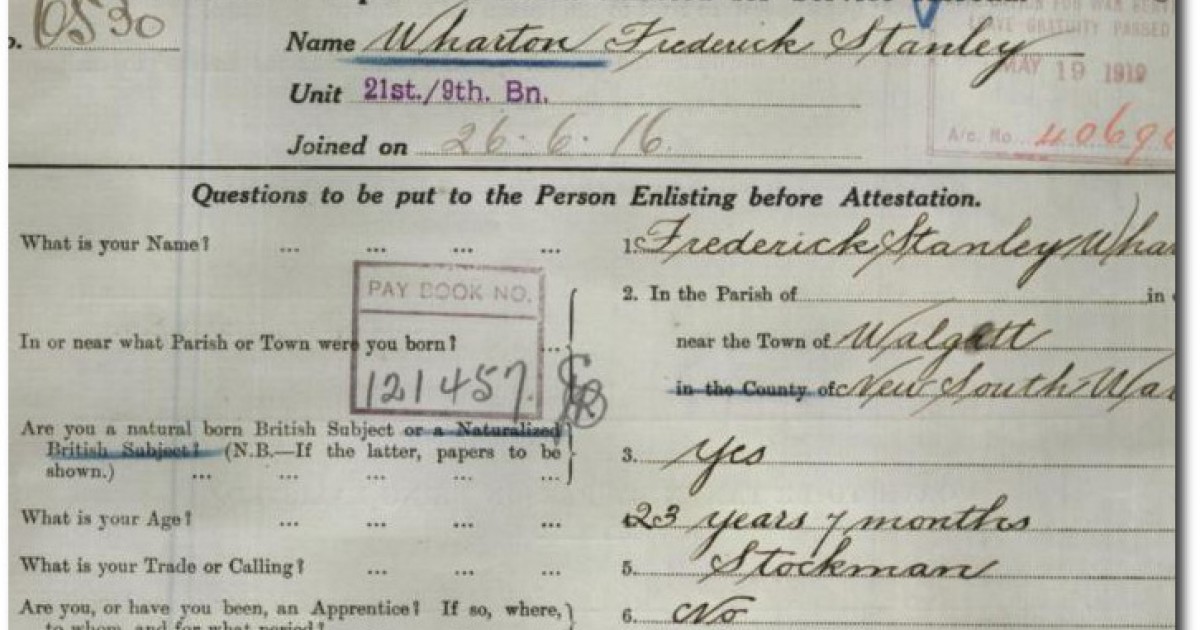 6530
Name Wharton Frederick Stanley
GRATUITY PASSED
MAY 19 1919
Unit 21st./9th. Bn.
Joined on 26.6.16.
A/c. No. 4069
Questions to be put to the Person Enlisting before Attestation.
What is your Name? ... ... ... ... 1. Frederick Stanley Wha
PAY BOOK NO.
2. In the Parish of in
In or near what Parish or Town were you born? ... near the Town of Walgett
121457.
in the County of New South Wa
Are you a natural born British Subject or a Naturalized
British Subject? (N.B.—If the latter, papers to be 3. Yes
shown.) ... ... ... ...
What is your Age? ... ... ... ... 23 years 7 months
What is your Trade or Calling? ... ... ... 5. Stockman
Are you, or have you been, an Apprentice? If so, where, 6. No
to whom, and for what period?